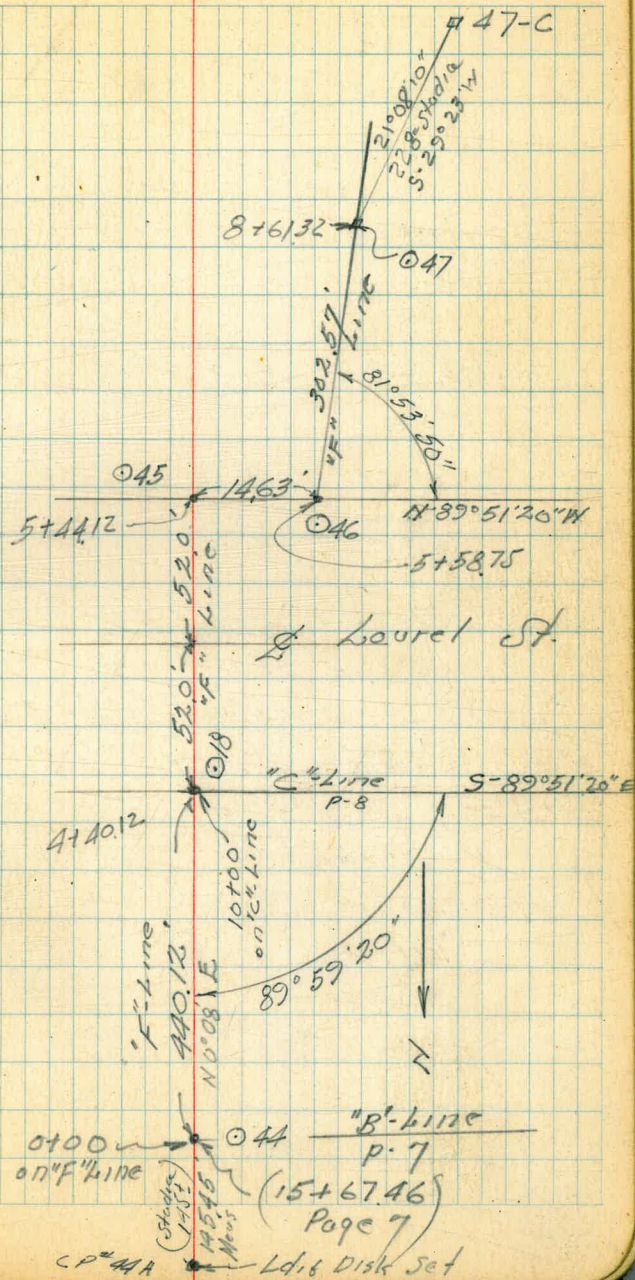 47-C
21°08'10"
228-Stadia
S-29°23'W
8+61.32
⊙47
302.57'
"F" Line
81°53'50"
⊙45
14.63'
N-89°51'20"W
5+44.12
⊙46
5+58.75
52.0'
"F" Line
℄ Laurel St.
52.0'
⊙18
"C"-Line
S-89°51'20"E
P-8
4+40.12
10+00
on "C"-Line
"F"-Line
440.12'
N0°08'E
89°59'20"
N
0+00
on "F" Line
⊙44
"B"-Line
P. 7
(Stadia
145±)
145.45
Meas
(15+67.46)
Page 7
CP #44A
Disk Set